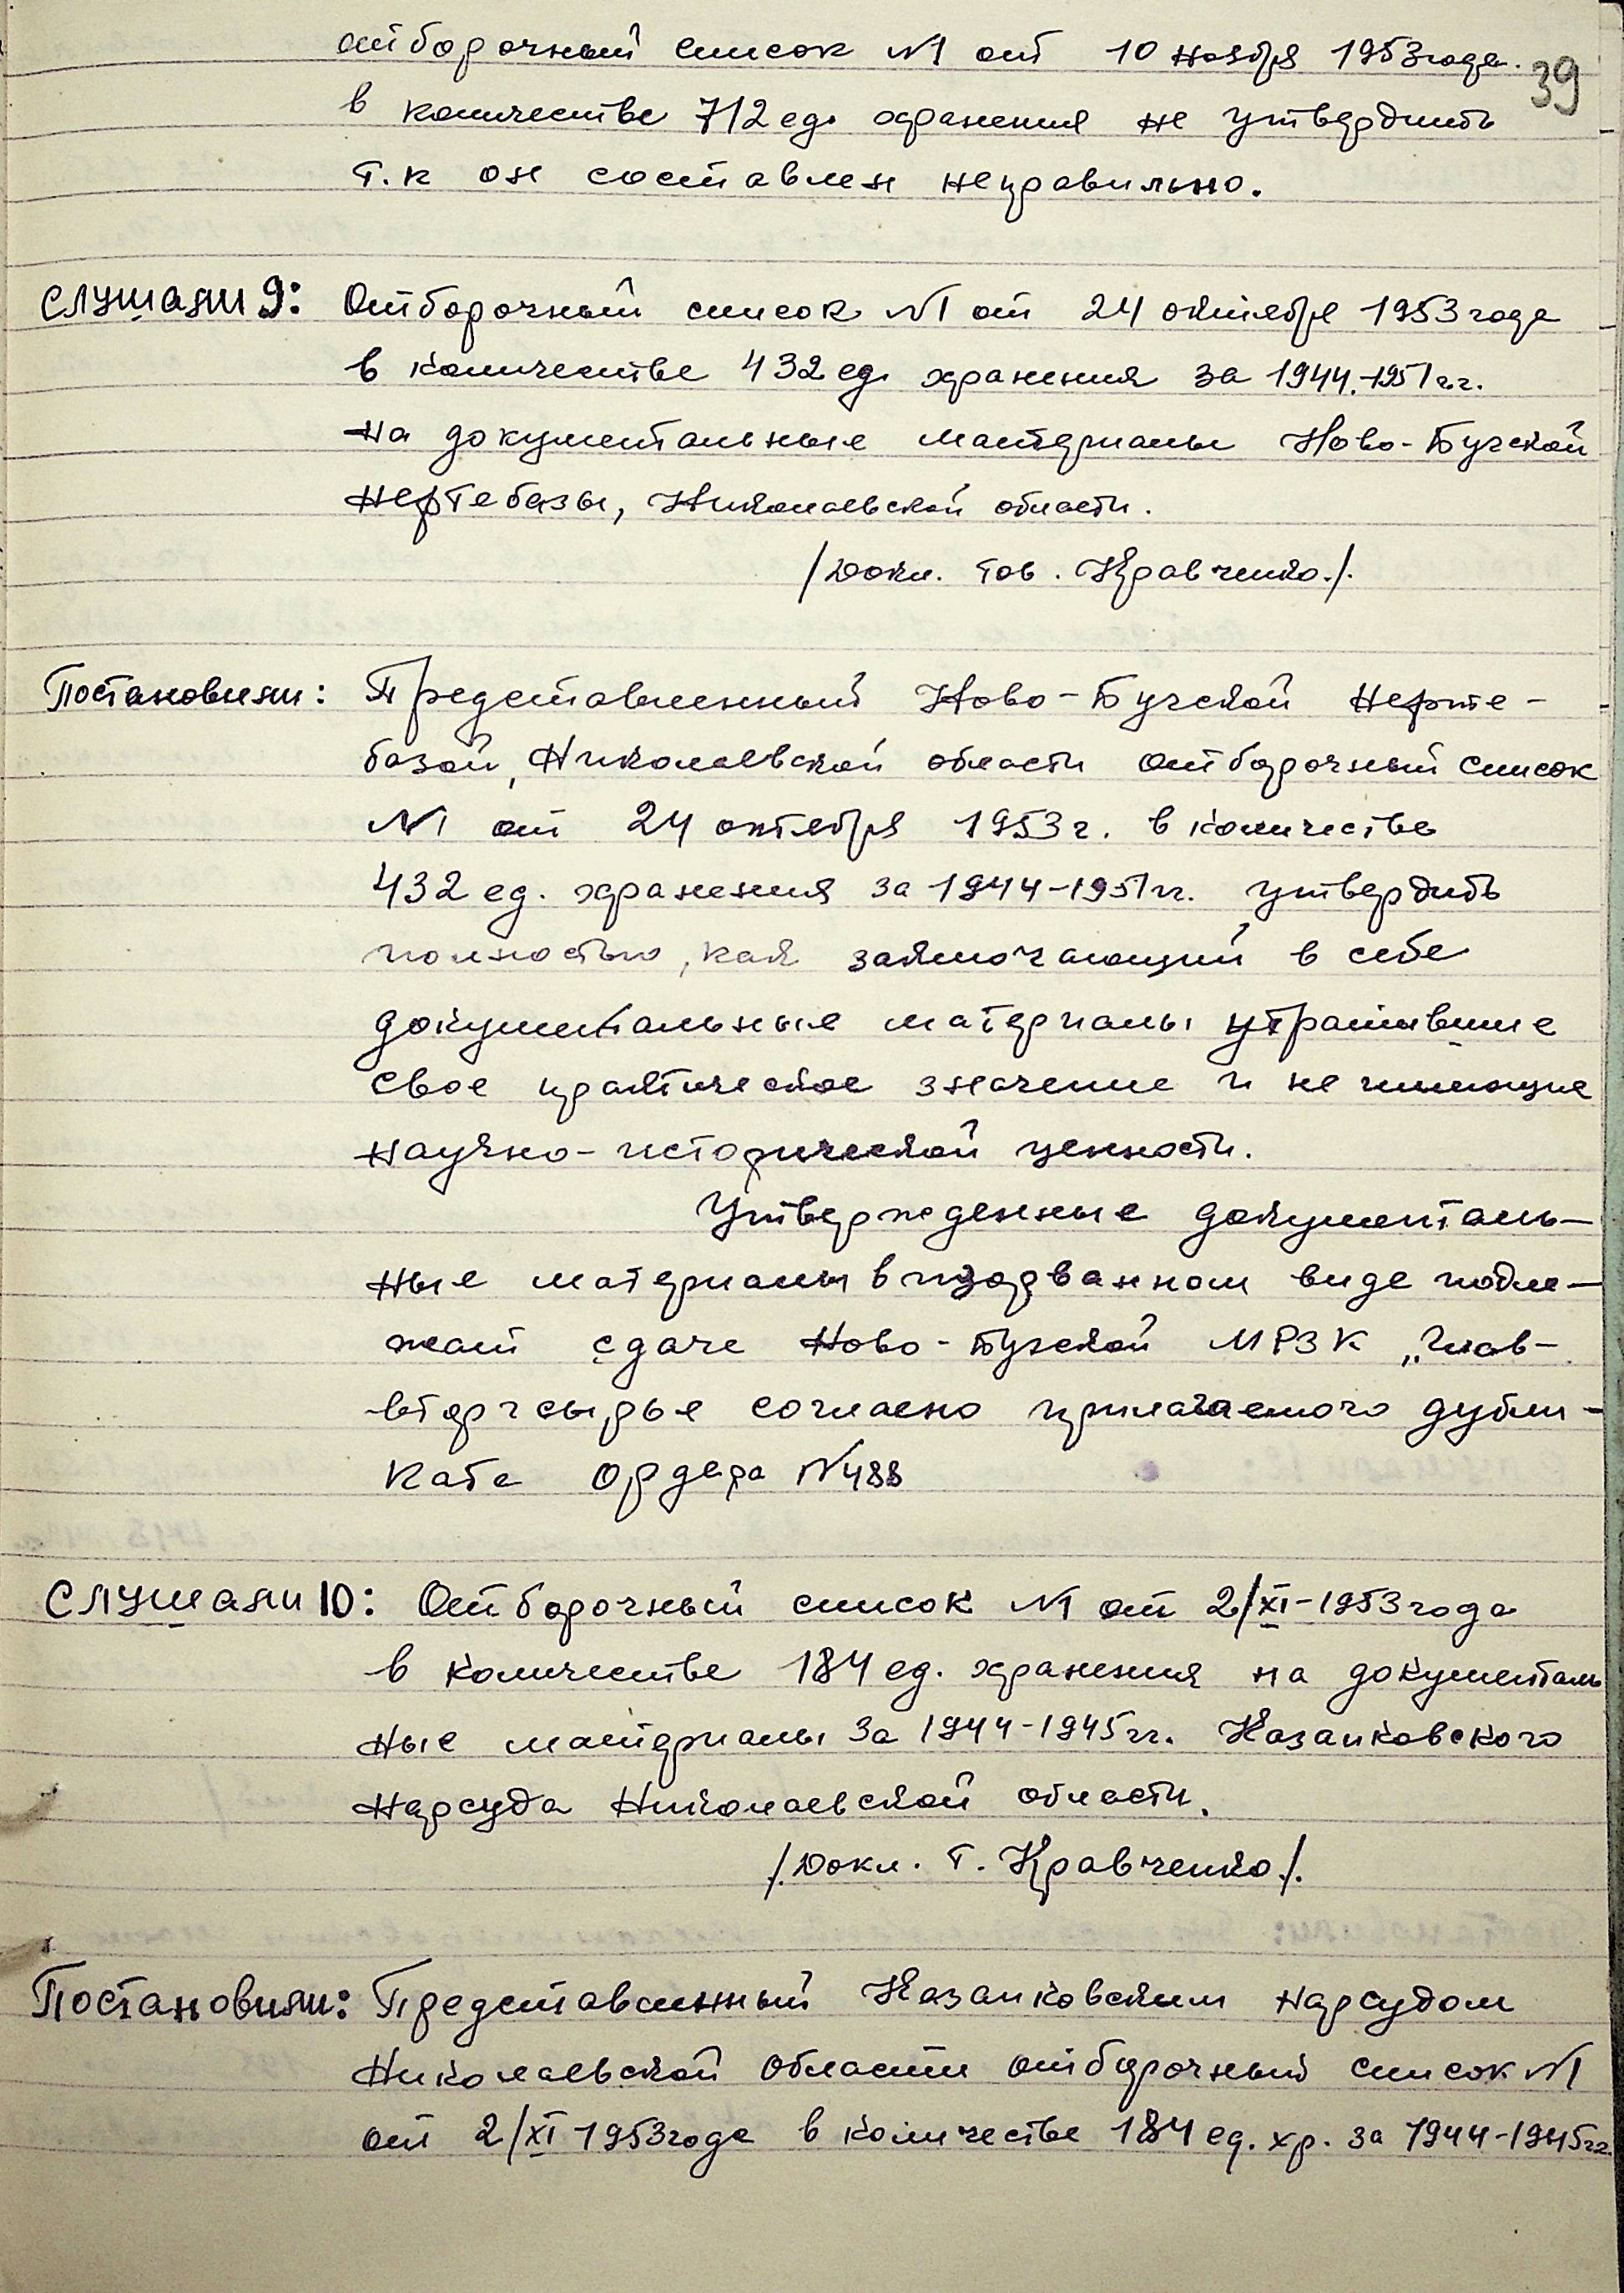 отборочный список №1 от 10 ноября 1953 года.
39
в количестве 712 ед. хранения не утвердить
т.к он составлен неправильно.
Слушали 9: Отборочный список №1 от 24 октября 1953 года
в количестве 432 ед. хранения за 1944-1951 г.г.
на документальные материалы Ново-Бугской
Нефтебазы, Николаевской области.
/Докл. тов. Кравченко./.
Постановили: Представленный Ново-Бугской Нефте-
базой, Николаевской области отборочный список
№1 от 24 октября 1953 г. в количестве
432 ед. хранения за 1944-1951 гг. утвердить
полностью, как заключающий в себе
документальные материалы утратившие
свое практическое значение и не имеющие
научно-исторической ценности.
Утвержденные документаль-
ные материалы в изорванном виде подле-
жат сдаче Ново-Бугской МРЗК „Глав-
вторчсырье согласно прилагаемого дубли-
ката ордера №488
Слушали 10: Отборочный список №1 от 2/XI-1953 года
в количестве 184 ед. хранения на документаль
ные материалы за 1944-1945 гг. Казанковского
Нарсуда Николаевской области.
/.Докл. т. Кравченко/.
Постановили: Представленный Казанковским Нарсудом
Николаевской области отборочный список №1
от 2/XI 1953 года в количестве 184 ед. хр. за 1944-1945 гг.